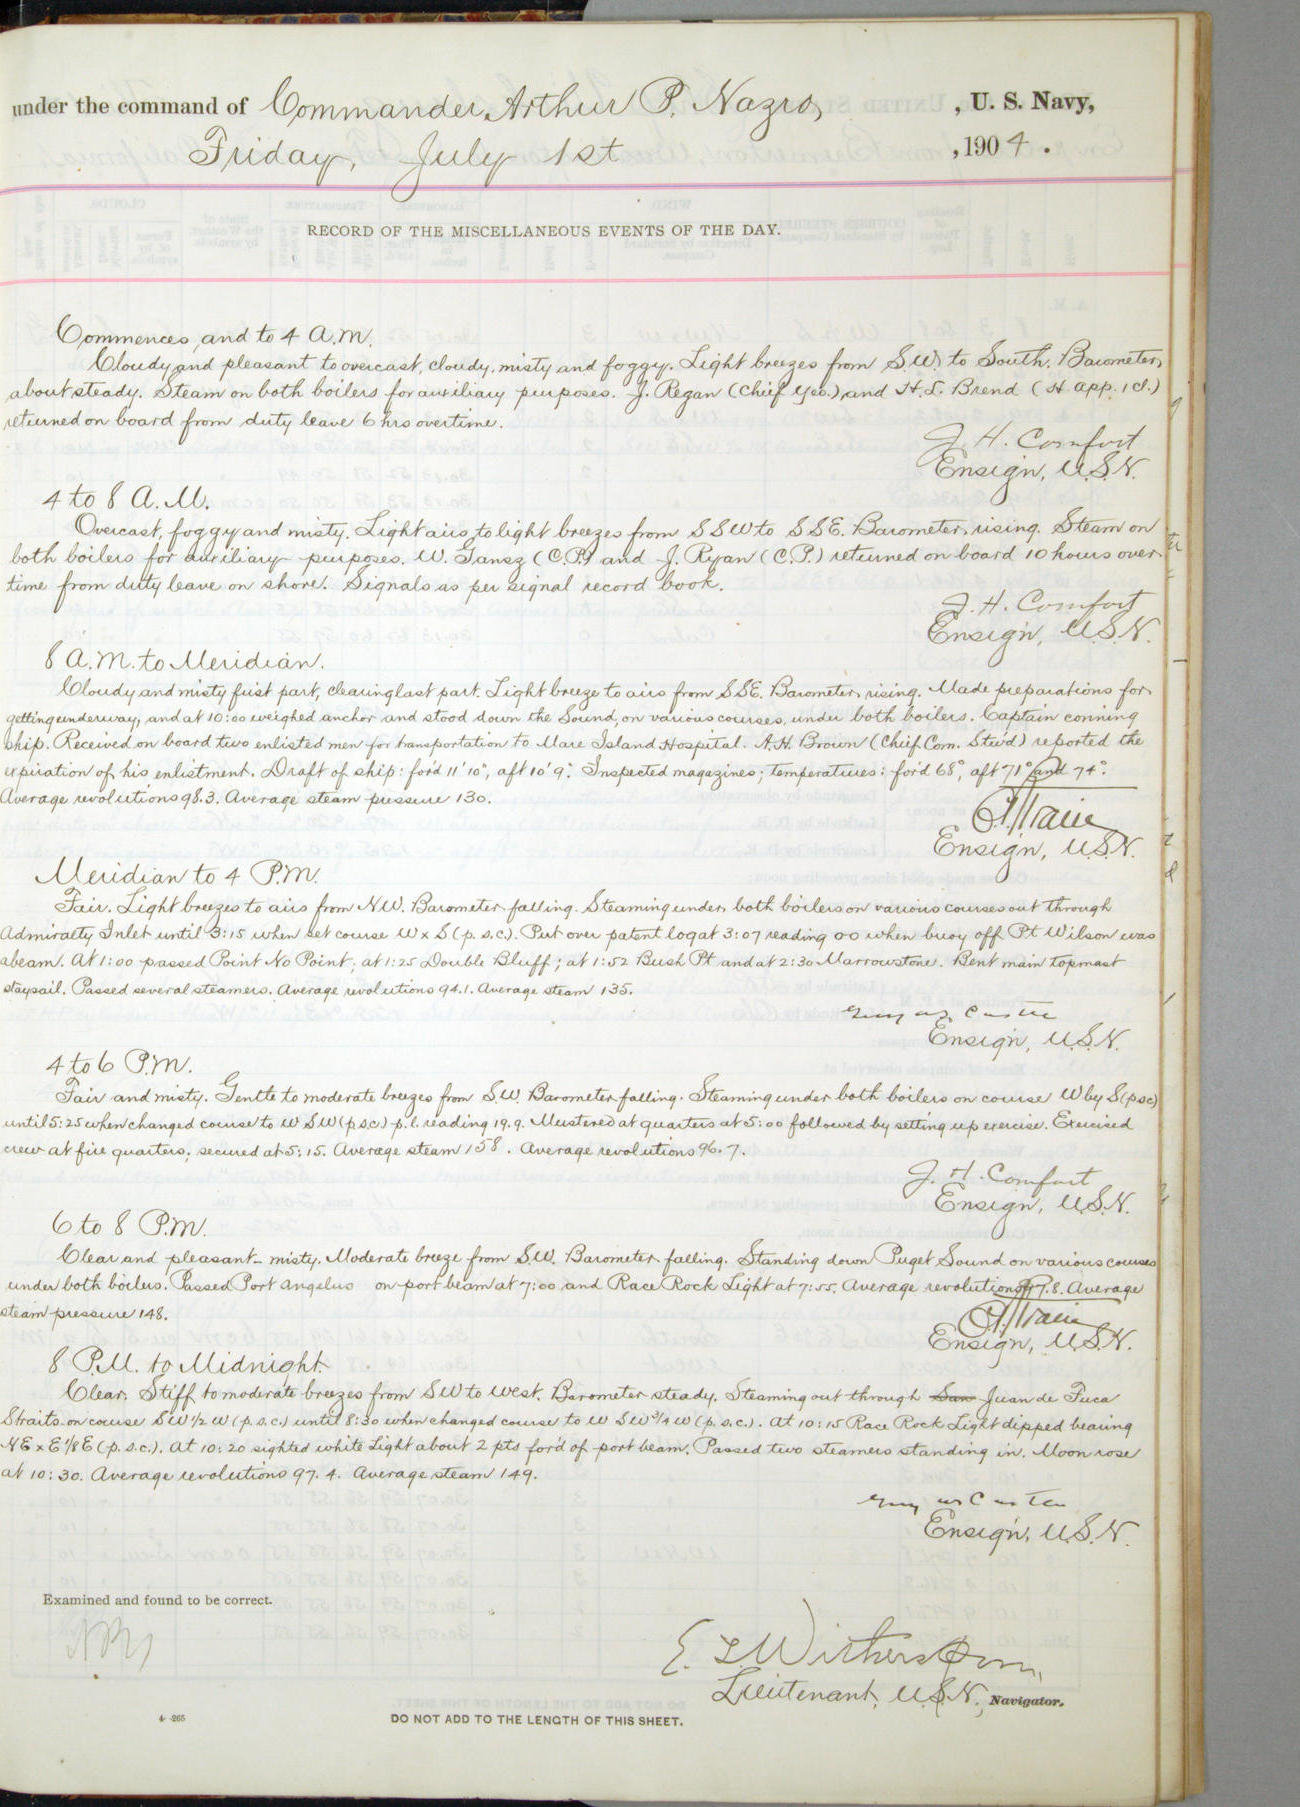 under the command of Commander Arthur P. Nazro, , U. S. Navy,
Friday, July 1st , 1904.
RECORD OF THE MISCELLANEOUS EVENTS OF THE DAY.
Commences and to 4 A.M.
Cloudy and pleasant to overcast, cloudy, misty and foggy. Light breezes from S.W. to South. Barometer
about steady. Steam on both boilers for auxiliary purposes. J. Regan (Chief Yeo.) and H. L. Brend (H. app. 1 cl.)
returned on board from duty leave 6 hrs overtime.
J. H. Comfort
Ensign, U.S.N.
4 to 8 A.M.
Overcast, foggy and misty. Light airs to light breezes from SSW to SSE. Barometer rising. Steam on
both boilers for auxiliary purposes. W. Gansz (C.P.) and J. Ryan (C.P.) returned on board 10 hours over
time from duty leave on shore. Signals as per signal record book.
J. H. Comfort
Ensign, U.S.N.
8 A.M. to Meridian.
Cloudy and misty first part, clearing last part. Light breeze to airs from SSE. Barometer rising. Made preparations for
getting underway, and at 10:00 weighed anchor and stood down the Sound, on various courses, under both boilers. Captain conning
ship. Received on board two enlisted men for transportation to Mare Island Hospital. A.H. Brown (Chief Com. Stew'd) reported the
expiration of his enlistment. Draft of ship: for'd 11' 10", aft 10' 9". Inspected magazines; temperatures: for'd 68°, aft 71° and 74°.
Average revolutions 98.3. Average steam pressure 130.
Ensign, U.S.N.
Meridian to 4 P.M.
Fair. Light breezes to airs from N.W. Barometer falling. Steaming under both boilers on various courses out through
Admiralty Inlet until 3:15 when set course W x S (p.s.c.). Put over patent log at 3:07 reading 00 when buoy off Pt Wilson was
abeam. At 1:00 passed Point No Point; at 1:25 Double Bluff; at 1:52 Bush Pt and at 2:30 Marrowstone. Bent main topmast
staysail. Passed several steamers. Average revolutions 94.1. Average steam 135.
Ensign, U.S.N.
4 to 6 P.M.
Fair and misty. Gentle to moderate breezes from S.W. Barometer falling. Steaming under both boilers on course W by S (psc)
until 5:25 when changed course to WSW (p.s.c.) p.l. reading 19.9. Mustered at quarters at 5:00 followed by setting up exercise. Exercised
crew at fire quarters; secured at 5:15. Average steam 158. Average revolutions 96.7.
J. H. Comfort
Ensign, U.S.N.
6 to 8 P.M.
Clear and pleasant - misty. Moderate breeze from S.W. Barometer falling. Standing down Puget Sound on various courses
under both boilers. Passed Port Angelus on port beam at 7:00 and Race Rock Light at 7:55. Average revolutions 97.8. Average
steam pressure 148.
Ensign, U.S.N.
8 P.M. to Midnight
Clear. Stiff to moderate breezes from SW to West. Barometer steady. Steaming out through San Juan de Fuca
Straits on course SW 1/2 W (p.s.c.) until 8:30 when changed course to WSW 3/4 W (p.s.c.). At 10:15 Race Rock Light dipped bearing
NE x E 1/8 E (p.s.c.). At 10:20 sighted white Light about 2 pts for'd of port beam. Passed two steamers standing in. Moon rose
at 10:30. Average revolutions 97.4. Average steam 149.
Ensign, U.S.N.
Examined and found to be correct.
E. L. Witherspoon,
Lieutenant, U.S.N., Navigator.
4-265
DO NOT ADD TO THE LENGTH OF THIS SHEET.